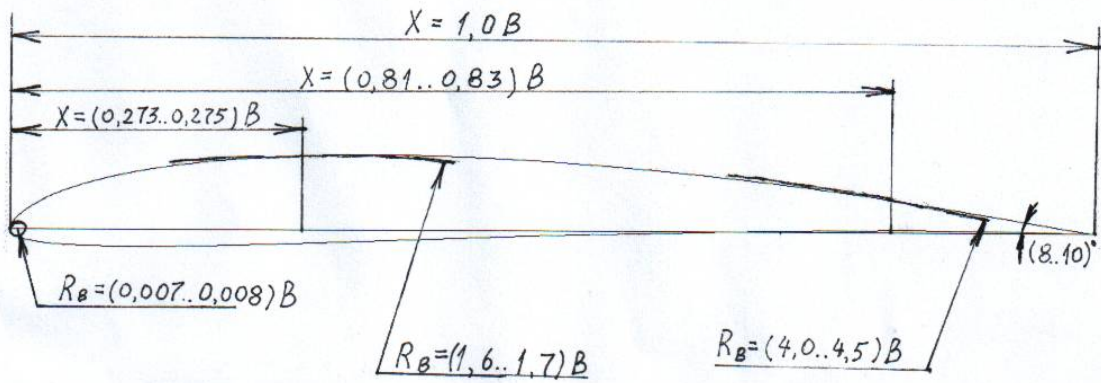 X = 1,0 B
X = (0,81..0,83) B
X=(0,273..0,275) B
(8..10)°
R_B=(0,007..0,008) B
R_B=(1,6..1,7) B
R_B=(4,0..4,5) B